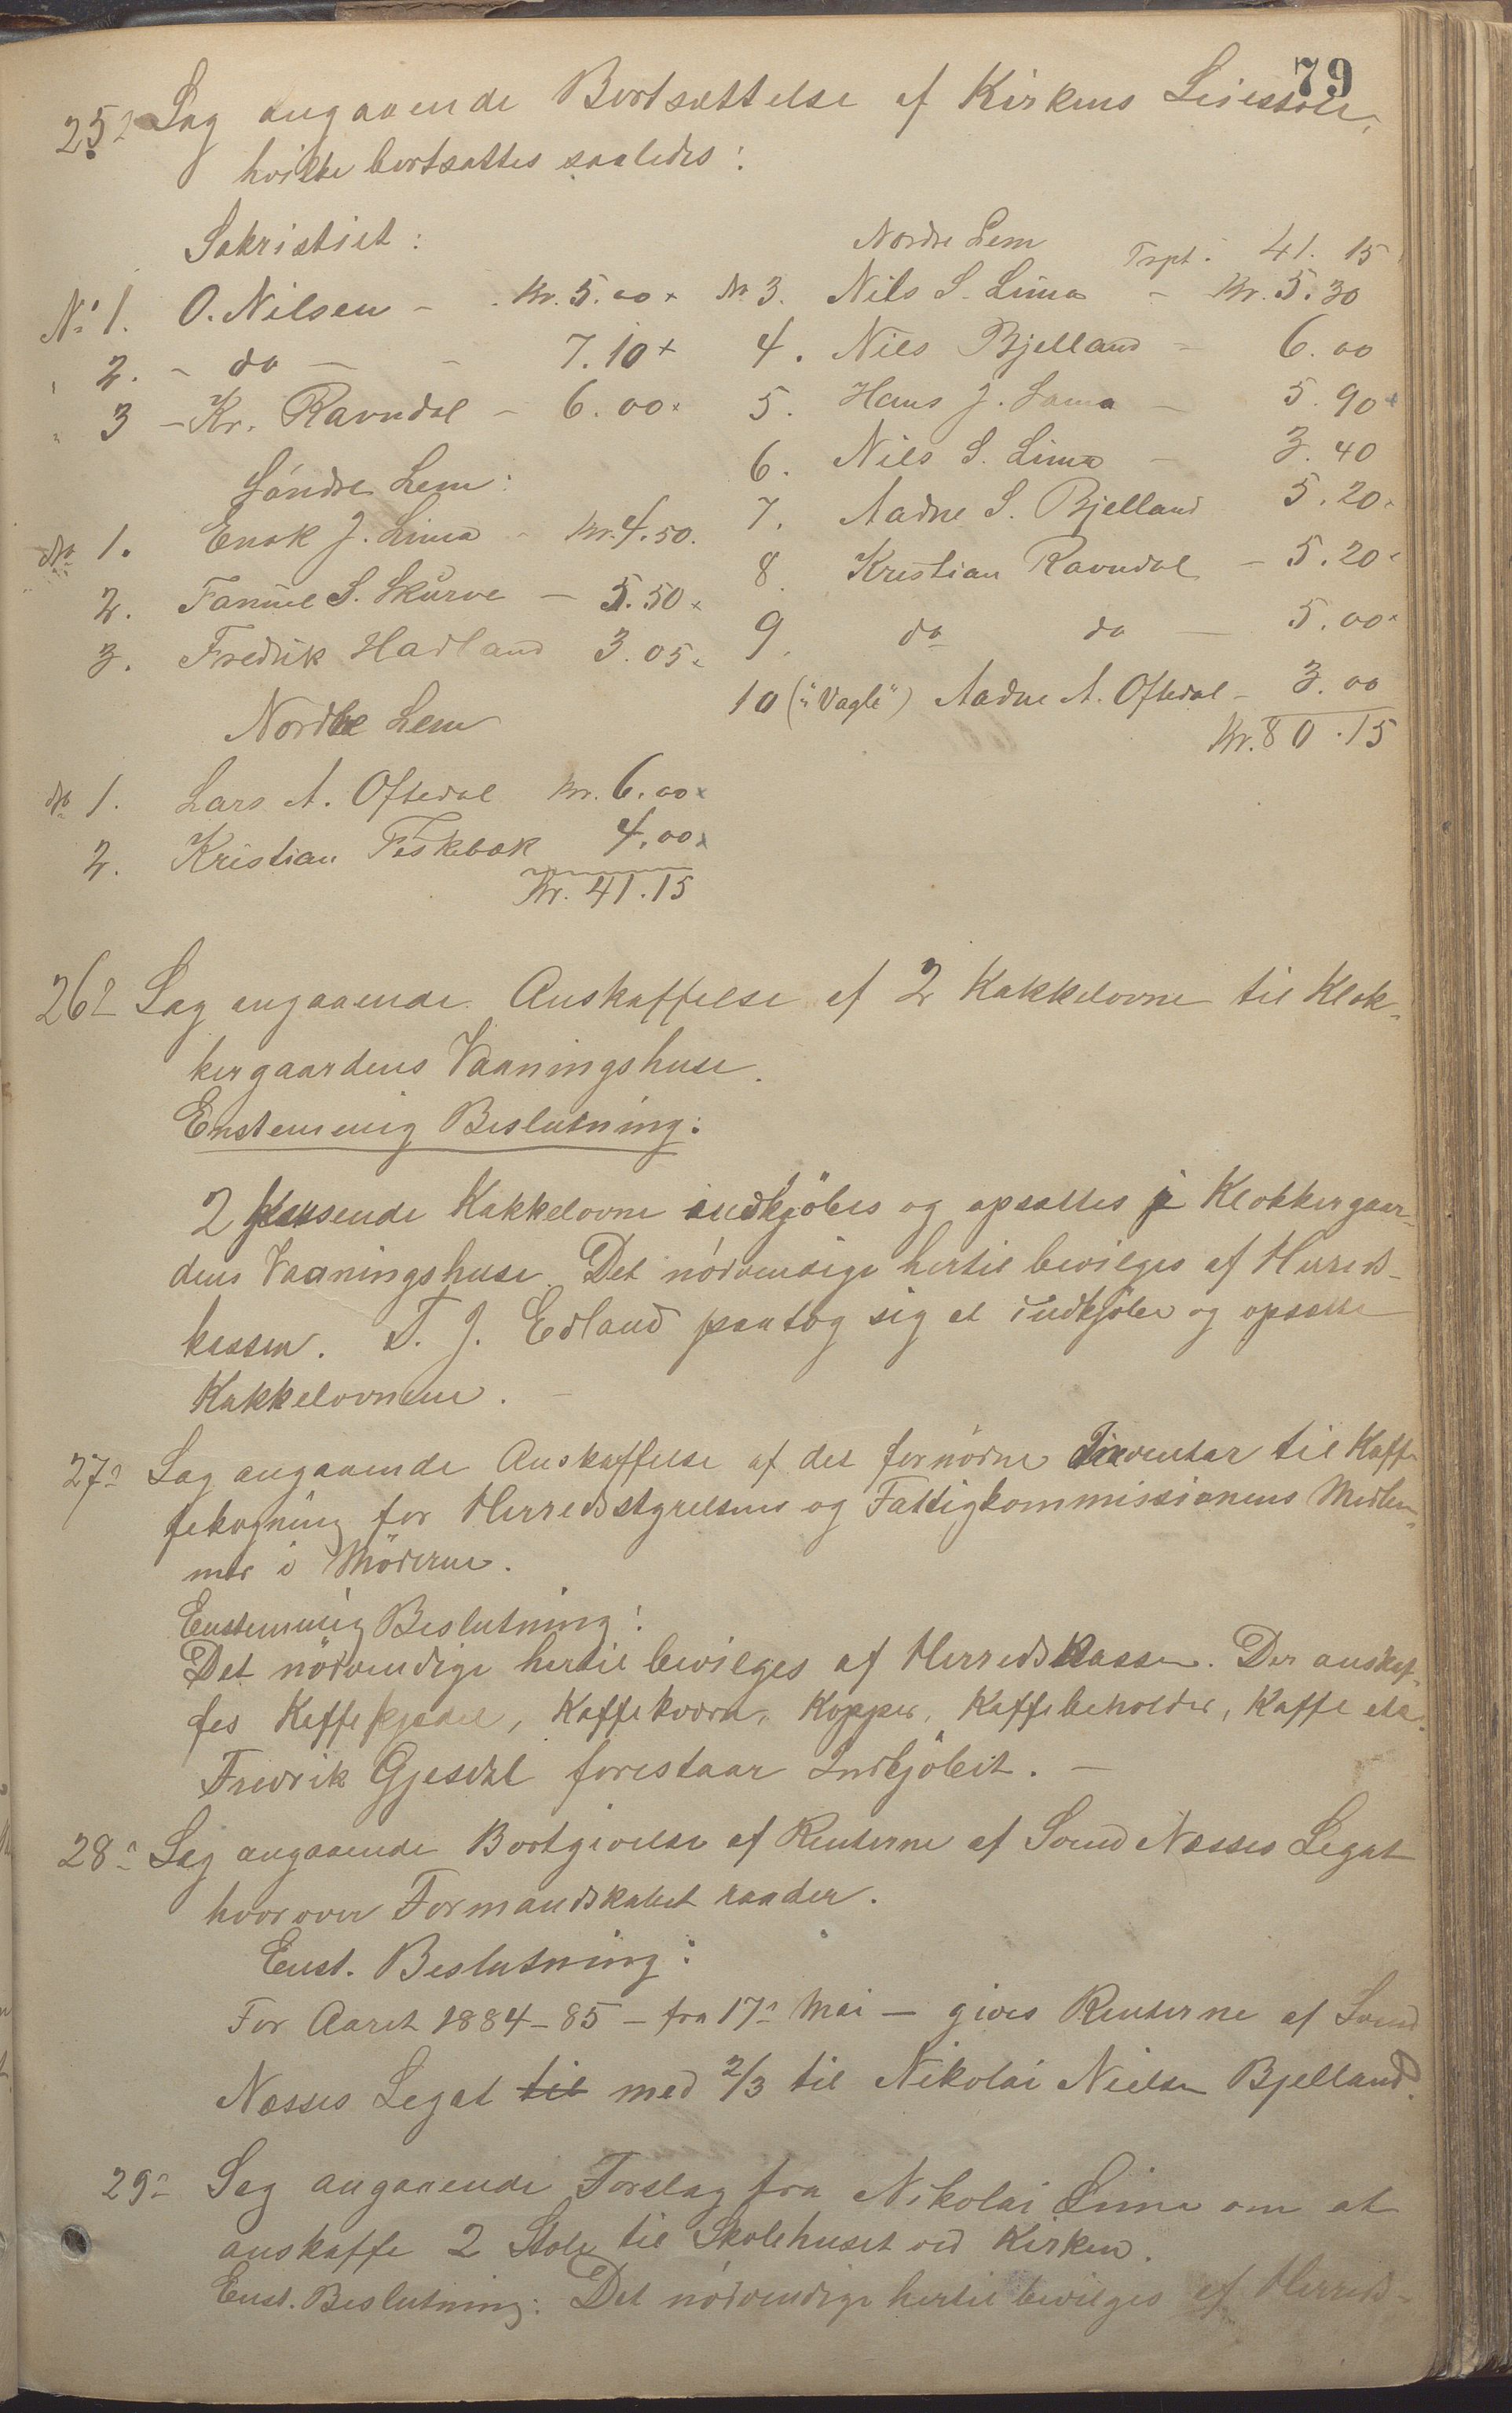 79
25de Sag angaaende Bortsættelse af Kirkens Leiestole,
hvilke bortsattes saaledes:
Sakristiet:
No 1. O. Nilsen - Kr. 5.00 x
" 2. - do - - 7.10 x
" 3 - Kr. Ravndal - 6.00 x
Söndre Lem:
No 1. Enok J. Lima - Kr. 4.50.
2. Fanuel S. Skurve - 5.50 x
3. Fredrik Hadland 3.05 x
Nordre Lem
No 1. Lars A. Oftedal Kr. 6.00 x
2. Kristian Fiskebæk 4.00 x
Kr. 41.15
Nordre Lem Trpt. 41.15
No 3. Nils S. Lima - Kr. 5.30
4. Niels Bjelland - 6.00
5. Hans J. Lima - 5.90 x
6. Nils S. Lima - 3.40
7. Aadne S. Bjelland 5.20 x
8. Kristian Ravndal - 5.20 x
9. do do - 5.00 x
10 ("Vagle") Aadne A. Oftedal - 3.00
Kr. 80.15
26de Sag angaaende Anskaffelse af 2 Kakkelovne til Klok-
kergaardens Vaaningshuse.
Enstemmig Beslutning:
2 passende Kakkelovne indkjöbes og opsættes i Klokkergaar-
dens Vaaningshuse. Det nödvendige hertil bevilges af Herreds-
kassen. T. J. Edland paatog sig at indkjöbe og opsætte
Kakkelovnene. -
27de Sag angaaende Anskaffelse af det fornödne Inventar til Kaf-
fekogning for Herredsstyrelsens og Fattigkommissionens Medlem-
mer i Möderne.
Enstemmig Beslutning:
Det nödvendige hertil bevilges af Herredskassen. Der anskaf-
fes Kaffekjedel, Kaffekværn, Kopper, Kaffebeholder, Kaffe etc.
Fredrik Gjesdal forestaar Indkjöbet. -
28de Sag angaaende Bortgivelse af Renterne af Svend Næsses Legat
hvorover Formandskabet raader.
Enst. Beslutning:
For Aaret 1884-85 - fra 17de Mai - gives Renterne af Svend
Næsses Legat til med 2/3 til Nikolai Nielsen Bjelland.
29de Sag angaaende Forslag fra Nikolai Lima om at
anskaffe 2 Stole til Skolehuset ved Kirken.
Enst. Beslutning: Det nödvendige hertil bevilges af Herreds-